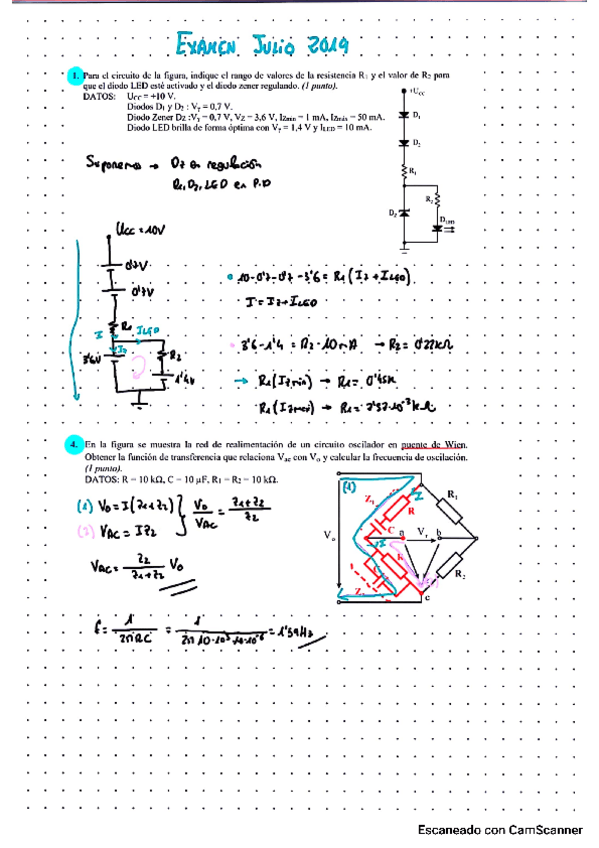 EXAMEN JULIO 2019
1. Para el circuito de la figura, indique el rango de valores de la resistencia R1 y el valor de R2 para
que el diodo LED esté activado y el diodo zener regulando. (1 punto).
DATOS: Ucc = +10 V.
Diodos D1 y D2 : Vγ = 0,7 V.
Diodo Zener Dz :Vγ = 0,7 V, Vz = 3,6 V, Izmin = 1 mA, Izmáx = 50 mA.
Diodo LED brilla de forma óptima con Vγ = 1,4 V y ILED = 10 mA.
+Ucc
D1
D2
R1
R2
DZ
DLED
Suponemos → Dz en regulación
R1, D2, LED en P.D
Ucc = 10V
0'7V
0'7V
R1
I
ILED
Iz
3'6V
R2
1'4V
10-0'7-0'7-3'6 = R1 (Iz + ILED)
I = Iz + ILED
3'6-1'4 = R2 · 10mA → R2 = 0'22kΩ
→ R1 (Izmin) → R1 = 0'45k
R1 (Izmax) → R1 =
4. En la figura se muestra la red de realimentación de un circuito oscilador en puente de Wien.
Obtener la función de transferencia que relaciona Vac con Vo y calcular la frecuencia de oscilación.
(1 punto).
DATOS: R = 10 kΩ, C = 10 µF, R1 = R2 = 10 kΩ.
(1) Vo = I (Z1+Z2)
(2) VAC = I Z2
Vo/VAC = Z1+Z2/Z2
VAC = Z2/Z1+Z2 Vo
f = 1/2πRC = 1/2π·10·10³·10·10⁻⁶ = 1'59Hz
(1)
Z1
I
R
R1
C
a
b
Vo
R
R2
c
Escaneado con CamScanner